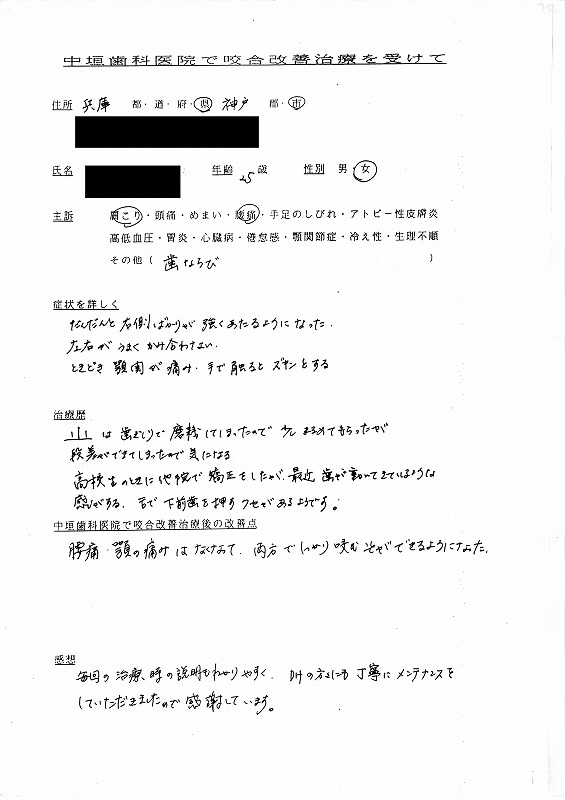 中垣歯科医院で咬合改善治療を受けて
住所 兵庫 都・道・府・県 神戸 郡・市
氏名 年齢 25 歳 性別 男・女
主訴 肩こり・頭痛・めまい・腰痛・手足のしびれ・アトピー性皮膚炎
高低血圧・胃炎・心臓病・倦怠感・顎関節症・冷え性・生理不順
その他( 歯ならび )
症状を詳しく
だんだんと右側ばかりが強くあたるようになった.
左右がうまくかみ合わない.
ときどき顎関が痛み、手で触るとズキンとする
治療歴
は歯ぎしりで磨耗してしまったので少しまるめてもらったが
段差ができてしまったので気になる
高校生のときに他院で矯正をしたが、最近歯が動いてきているような
感がする. 舌で下前歯を押すクセがあるようです。
中垣歯科医院で咬合改善治療後の改善点
腰痛・顎の痛みはなくなって、両方でしっかり咬む事ができるようになった.
感想
毎回の治療、時の説明もわかりやすく. DHの方にも丁寧にメンテナンスを
していただきましたので感謝しています。